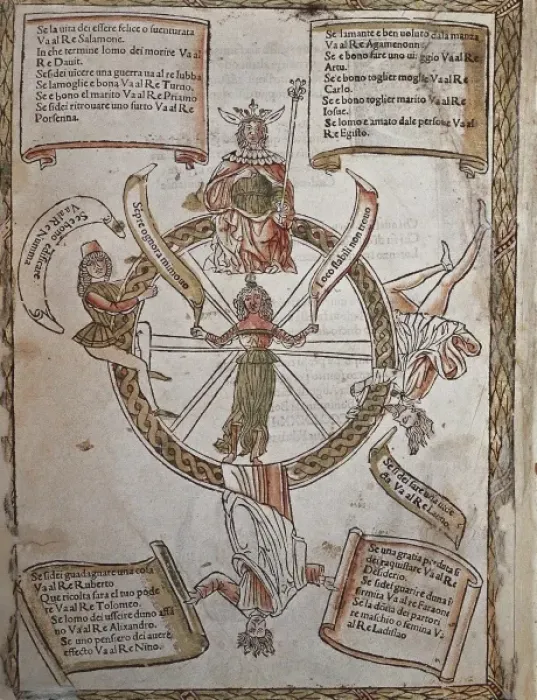 Se la uita dei essere felice o suenturata
Va al Re Salamone.
In che termine lomo dei morire Va al
Re Dauit.
Se sidei uicere una guerra ua al re Iubba
Se la moglie e bona Va al Re Turno.
Se e bono el marito Va al Re Priamo
Se sidei ritrouare uno furto Va al Re
Porsenna.
Se lamante e ben uoluto dala manza
Va al Re Agamenone
Se e bono fare uno uiaggio Va al Re
Artu.
Se e bono toglier moglie Va al Re
Carlo.
Se e bono toglier marito Va al Re
Iosue.
Se lomo e amato dale persone Va al
Re Egisto.
Se e bono edificare
Va al Re Numma
Sepre ognora mimouo
Loco stabili non trouo
Se si dei fare una
Va al Re
Se sidei guadagnare una cosa
Va al Re Ruberto
Que ricolta fara el tuo pode
re Va al Re Tolomeo.
Se lomo dei uscire duno affa
no Va al Re Alixandro.
Se uno pensiero dei auere
effecto Va al Re Nino.
Se una gratia perduta si
dei raquistare Va al Re
Desiderio.
Se sidei guarire duna i
firmita Va al re Faraone
Se la dona dei partori
re maschio o femina Va
al Re Ladislao